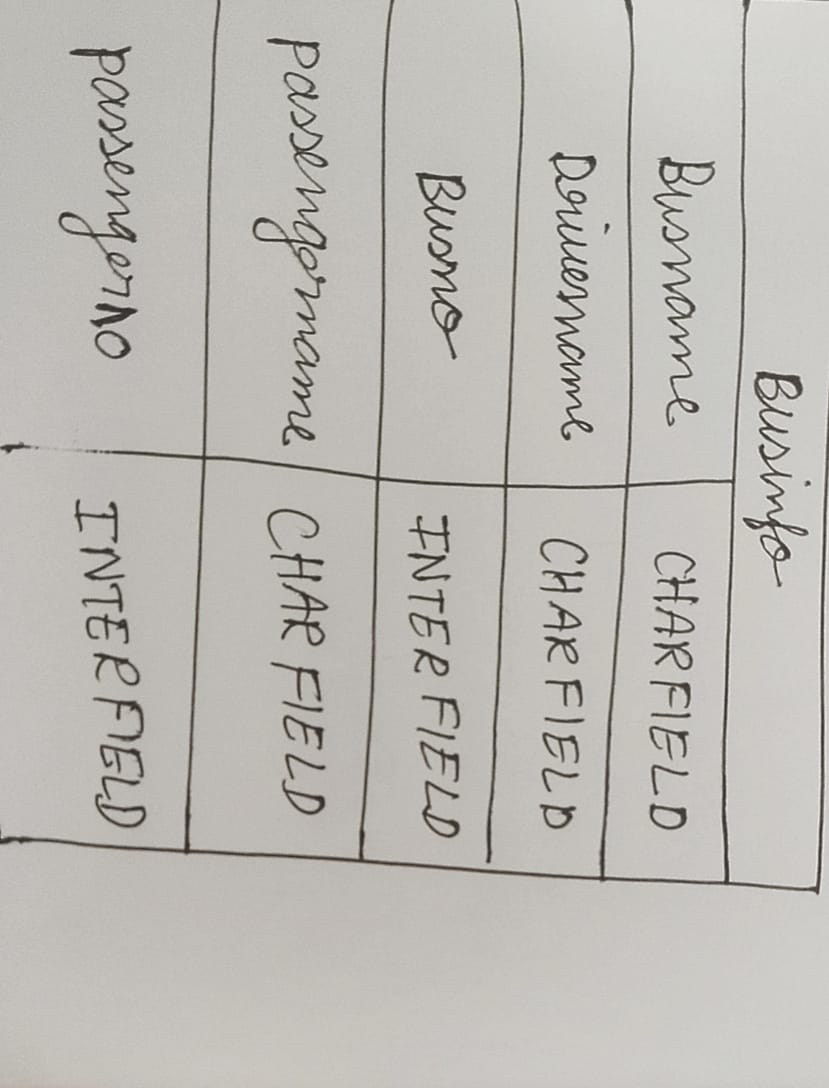 Businfo
Busname CHARFIELD
Drivername CHARFIELD
Busno INTERFIELD
passengername CHARFIELD
passengerNo INTERFIELD